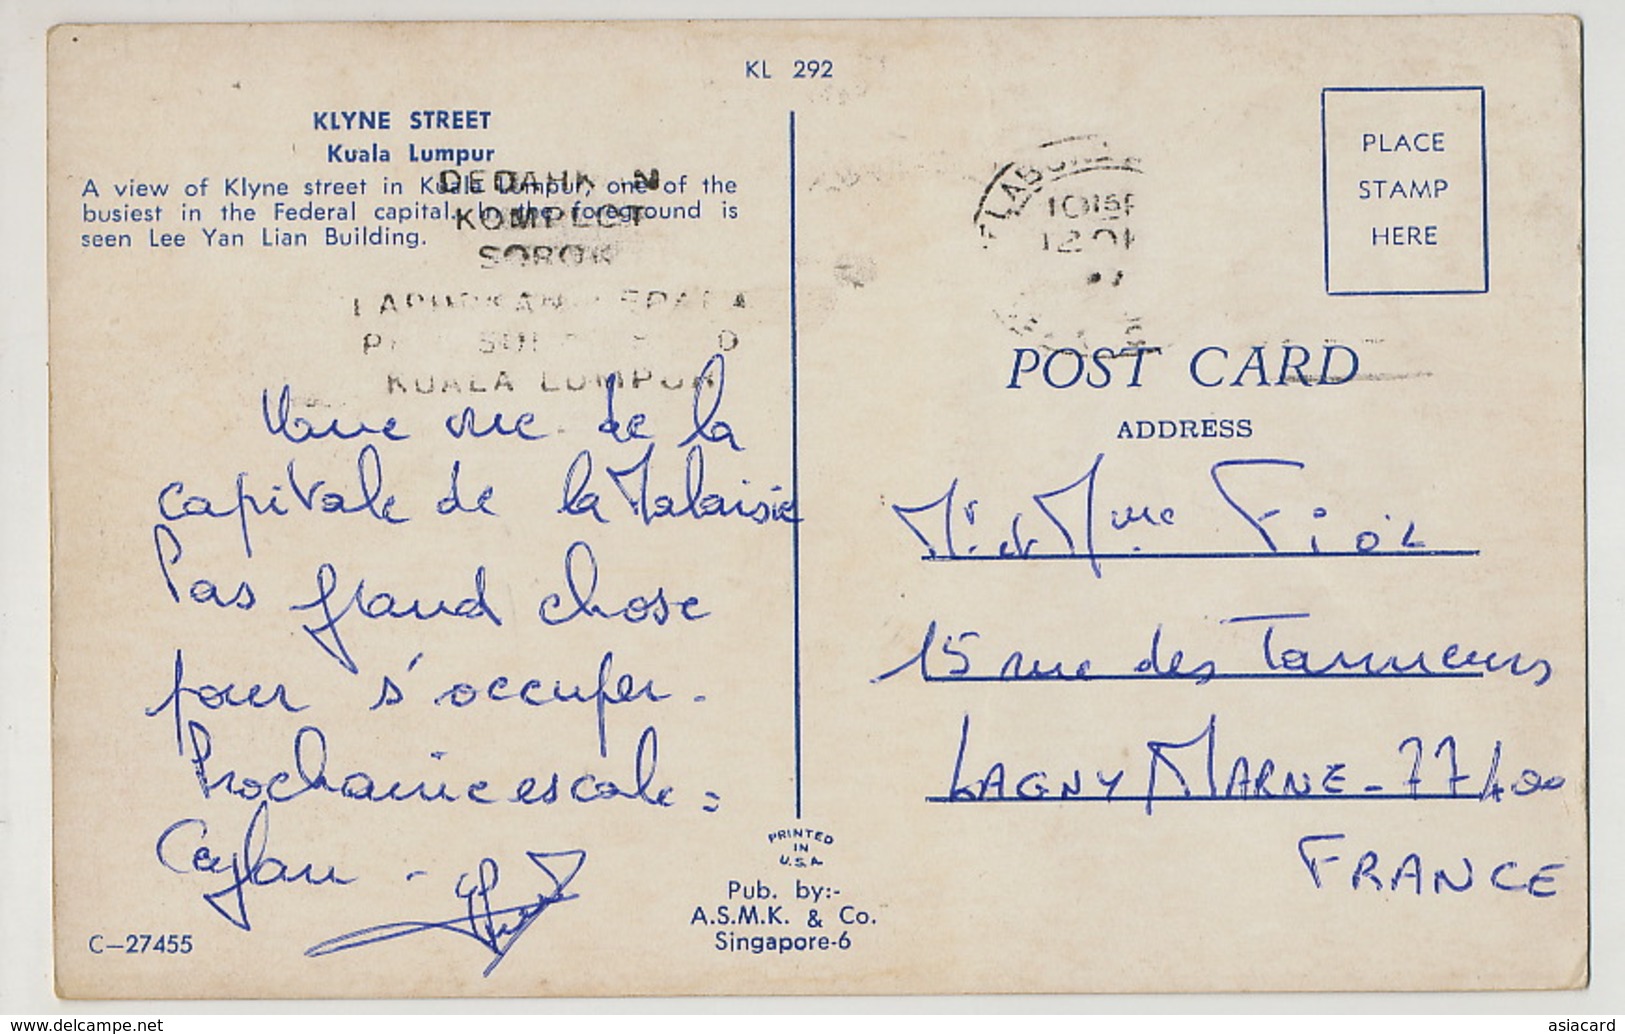 KL 292
KLYNE STREET
Kuala Lumpur
A view of Klyne street in Kuala Lumpur, one of the
busiest in the Federal capital. In the foreground is
seen Lee Yan Lian Building.
KOMPLOT
SOROK
KUALA LUMPUR
vue de la
capitale de la Malaisie
Pas grand chose
pour s'occuper.
Prochaine escale :
Ceylan -
C-27455
PRINTED
IN
U.S.A.
Pub. by:-
A.S.M.K. & Co.
Singapore-6
PLACE
STAMP
HERE
POST CARD
ADDRESS
Mr et Mme Fiol
15 rue des Tanneurs
LAGNY MARNE - 77400
FRANCE
asiacard